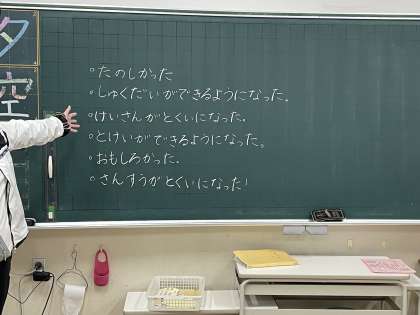 夕
空
◦たのしかった
◦しゅくだいができるようになった。
◦けいさんがとくいになった.
◦とけいができるようになった。
◦おもしろかった.
◦さんすうがとくいになった!